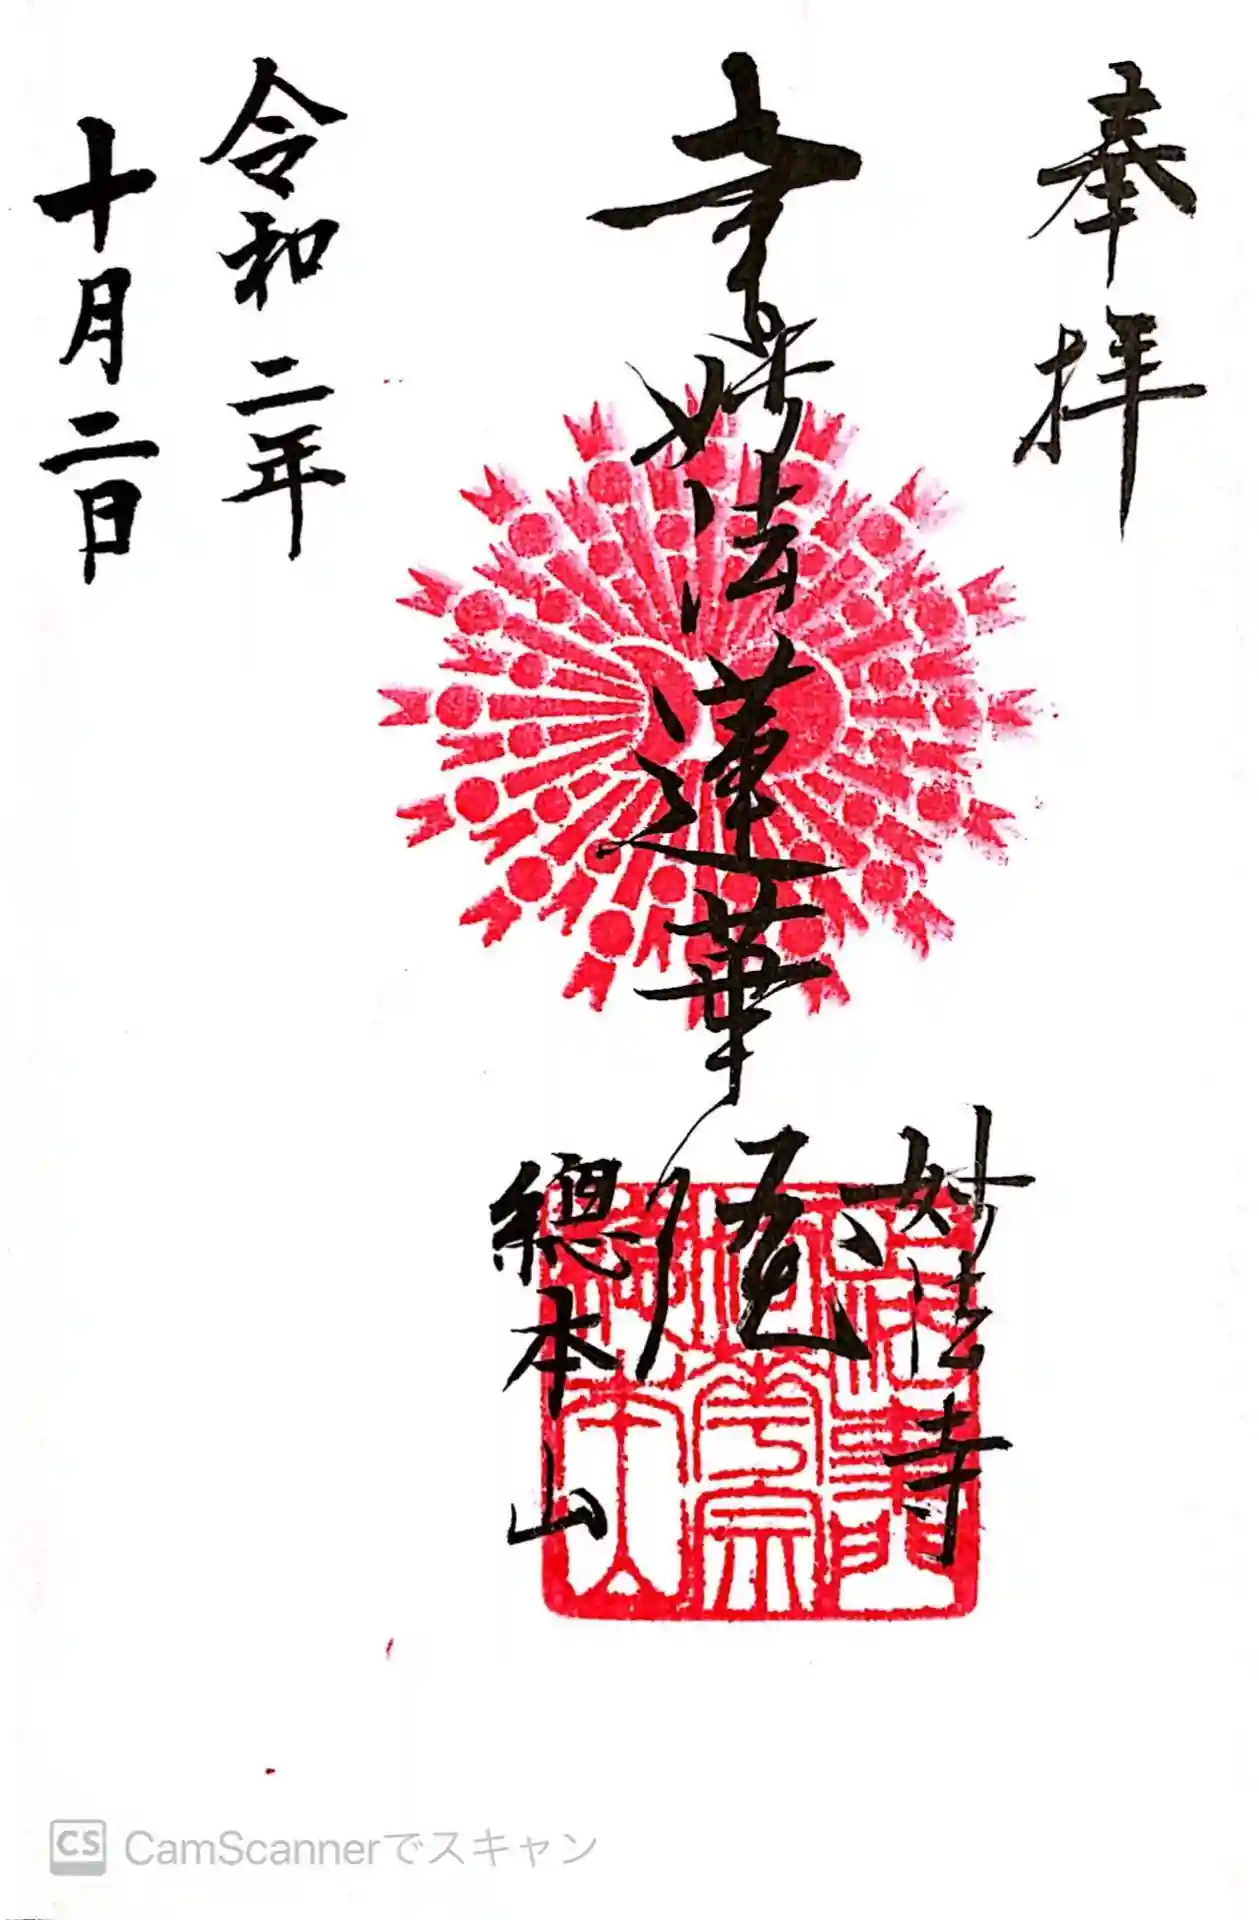 奉拝
妙法蓮華
妙法寺
總本山
令和二年
十月二日
CS CamScannerでスキャン